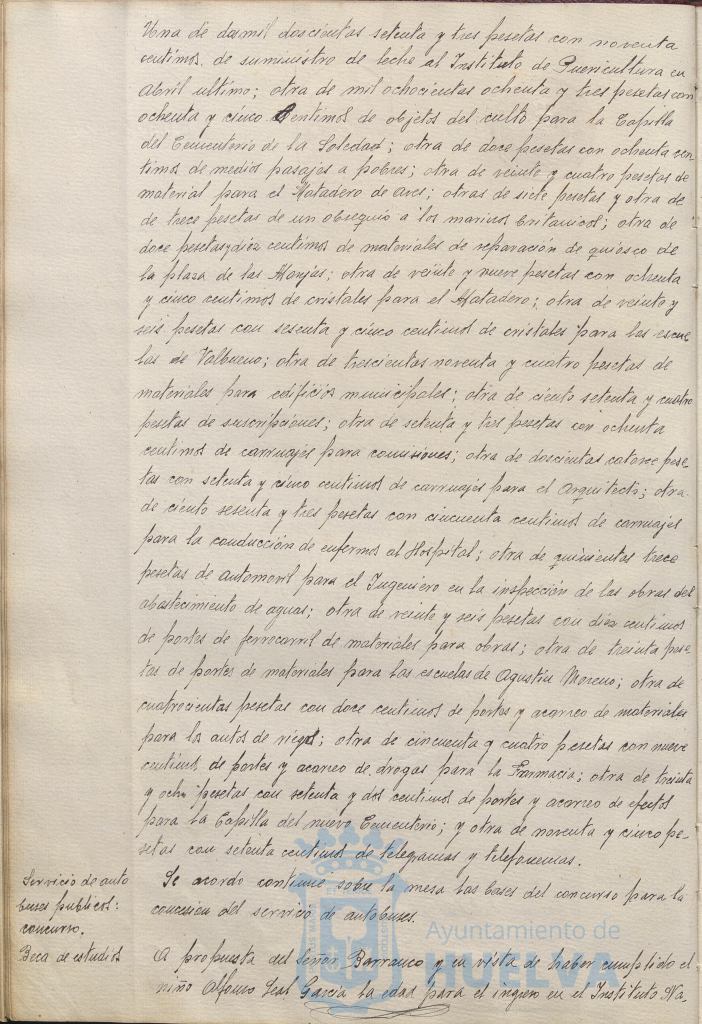 Una de dos mil doscientas setenta y tres pesetas con noventa
centimos, de suministro de leche al Instituto de Puericultura en
Abril ultimo; otra de mil ochocientas ochenta y tres pesetas con
ochenta y cinco centimos de objetos del culto para la Capilla
del Cementerio de la Soledad; otra de doce pesetas con ochenta cen
timos de medios pasajes a pobres; otra de veinte y cuatro pesetas de
material para el Matadero de Aves; otras de siete pesetas y otra de
de trece pesetas de un obsequio a los marinos britanicos; otra de
doce pesetas y diez centimos de materiales de reparación de quiosco de
la plaza de las Monjas; otra de veinte y nueve pesetas con ochenta
y cinco centimos de cristales para el Matadero; otra de veinte y
seis pesetas con sesenta y cinco centimos de cristales para las escue
las de Valbueno; otra de trescientas noventa y cuatro pesetas de
materiales para edificios municipales; otra de ciento setenta y cuatro
pesetas de suscripciones; otra de setenta y tres pesetas con ochenta
centimos de carruajes para comisiones; otra de doscientas catorce pese-
tas con setenta y cinco centimos de carruajes para el Arquitecto; otra
de ciento sesenta y tres pesetas con cincuenta centimos de carruajes
para la conducción de enfermos al Hospital; otra de quinientas trece
pesetas de automovil para el Ingeniero en la inspección de las obras del
abastecimiento de aguas; otra de veinte y seis pesetas con diez centimos
de portes de ferrocarril de materiales para obras; otra de treinta pese-
tas de portes de materiales para las escuelas de Agustín Moreno; otra de
cuatrocientas pesetas con doce centimos de portes y acarreo de materiales
para los autos de riego; otra de cincuenta y cuatro pesetas con nueve
centimos de portes y acarreo de drogas para la Farmacia; otra de treinta
y ocho pesetas con setenta y dos centimos de portes y acarreo de efectos
para la Capilla del nuevo Cementerio; y otra de noventa y cinco pe-
setas con setenta centimos de telegramas y telefonemas.
Servicio de auto
buses publicos:
concurso.
Se acordo continue sobre la mesa las bases del concurso para la
concesion del servicio de autobuses.
Beca de estudios
A propuesta del señor Barranco y en vista de haber cumplido el
niño Alfonso Leal Garcia la edad para el ingreso en el Instituto Na-
Ayuntamiento de
HUELVA